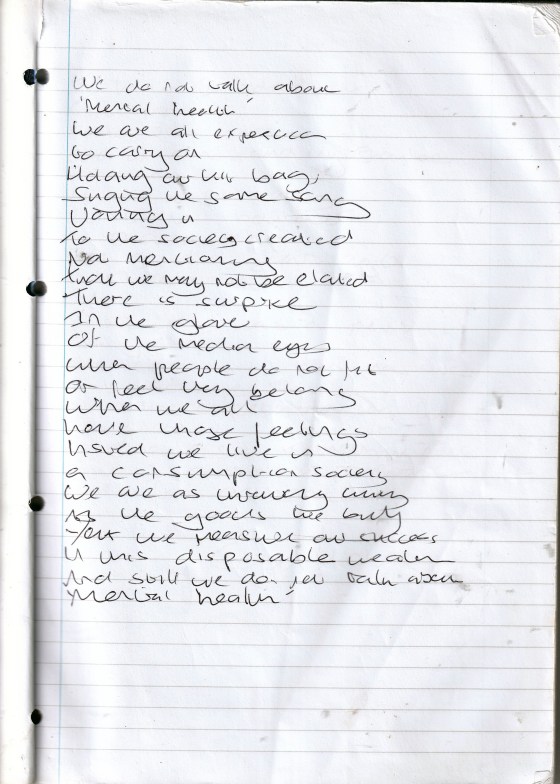 We do not talk about
'Mental health'
We are all expected
to carry on
Holding our bags,
Singing the same song
to the society created
Not mentioning
that we may not be elated
There is surprise
In the glare
Of the media eyes
when people do not fit
or feel they belong
When we all
have those feelings
we live in
a consumption society
We are as
As the goods we buy
Yet we measure our success
in this disposable wealth
And still we do not talk about
'Mental health'